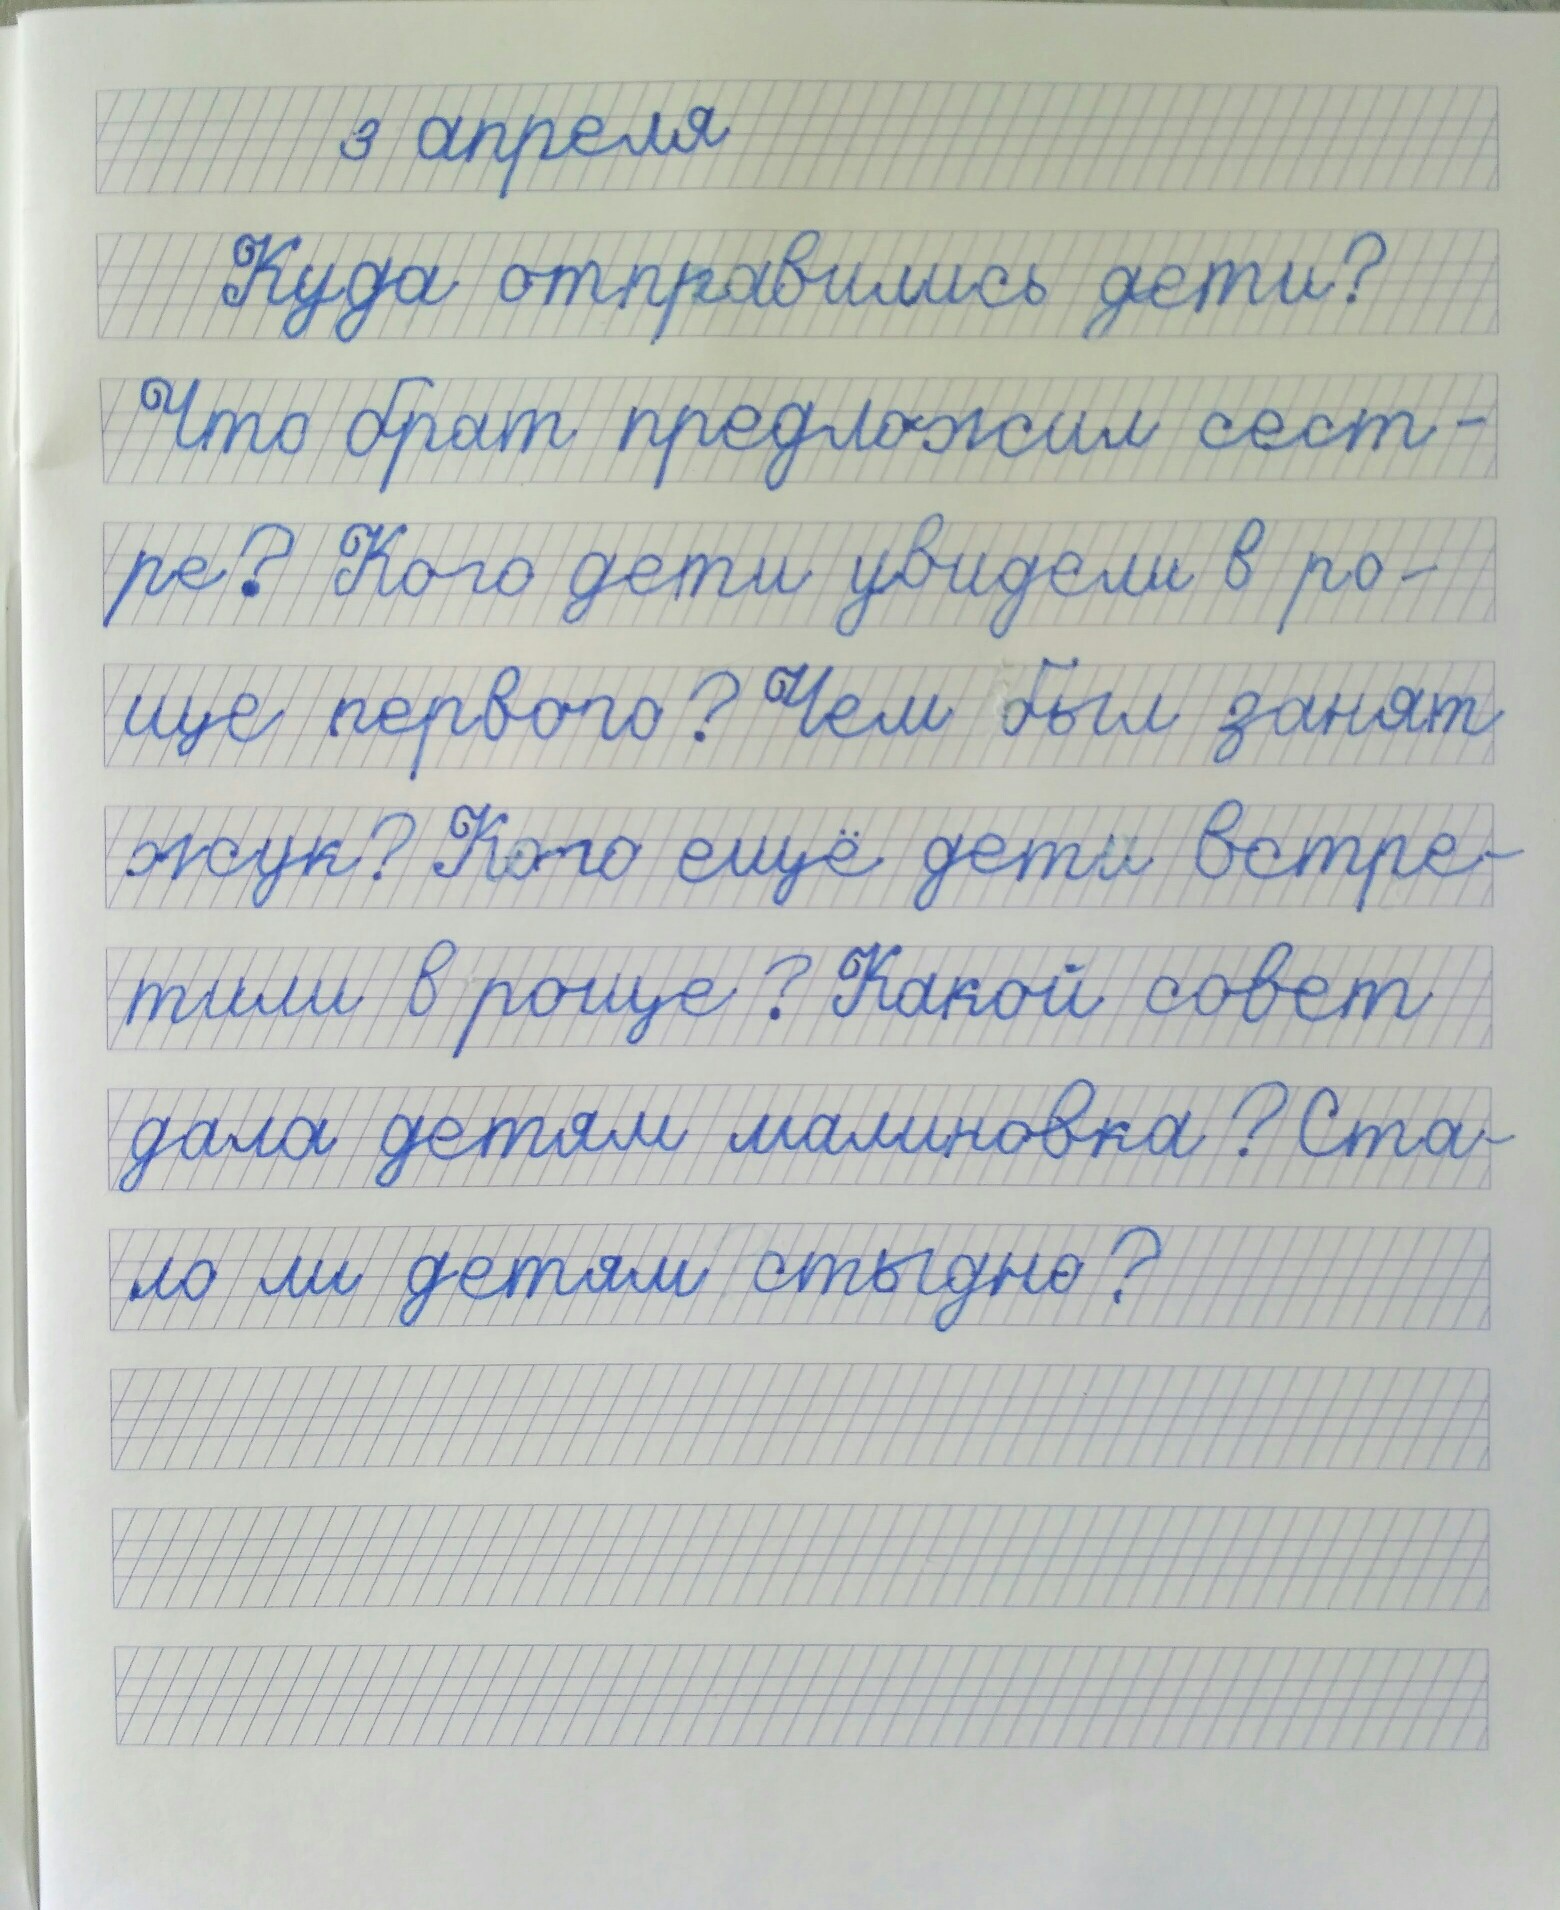 3 апреля
Куда отправились дети?
Что брат предложил сест-
ре? Кого дети увидели в ро-
ще первого? Чем был занят
жук? Кого ещё дети встре-
тили в роще? Какой совет
дала детям малиновка? Ста-
ло ли детям стыдно?